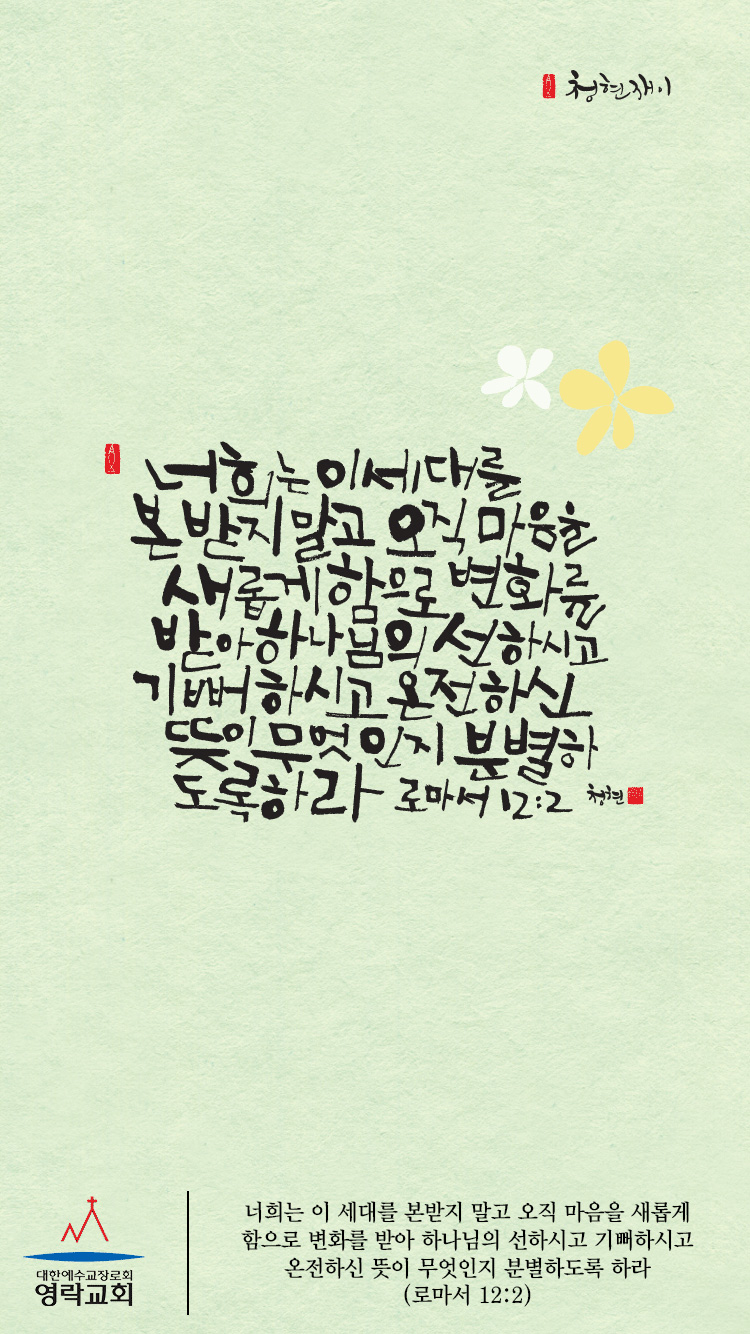 청현재이
너희는 이 세대를
본받지 말고 오직 마음을
새롭게 함으로 변화를
받아 하나님의 선하시고
기뻐하시고 온전하신
뜻이 무엇인지 분별하
도록 하라 로마서 12:2 청현
대한예수교장로회
영락교회
너희는 이 세대를 본받지 말고 오직 마음을 새롭게
함으로 변화를 받아 하나님의 선하시고 기뻐하시고
온전하신 뜻이 무엇인지 분별하도록 하라
(로마서 12:2)